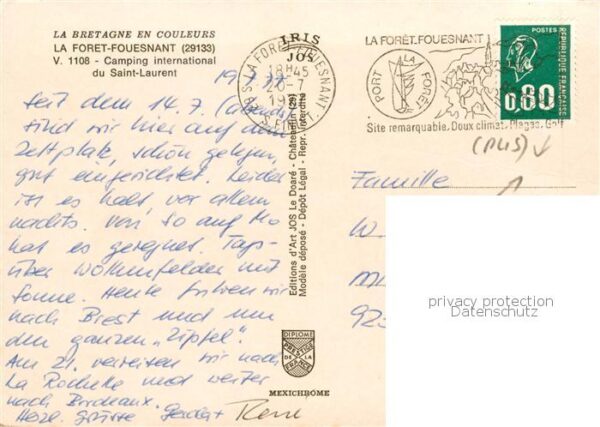 LA BRETAGNE EN COULEURS
LA FORET-FOUESNANT (29133)
V. 1108 - Camping international
du Saint-Laurent
IRIS
JOS
LA FORET-FOUESNANT
18H45
S. FINIST.
LA FORÊT-FOUESNANT
PORT LA FORÊT
Site remarquable. Doux climat. Plages. Golf
POSTES
RÉPUBLIQUE FRANÇAISE
0,80
Seit dem 14.7. (abends)
sind wir hier auf dem
Zeltplatz, schön gelegen,
gut eingerichtet. Leider
ist es halt vor allem
nachts. Von So auf Mo
hat es geregnet. Tags-
über Wolkenfelder mit
Sonne. Heute fuhren wir
nach Brest und um
den ganzen "Zipfel".
Am 21. verreisen wir nach
La Rochelle und weiter
nach Bordeaux.
Herzl. Grüsse René
Editions d'Art JOS Le Doaré - Châteaulin (29)
Modèle déposé - Dépôt Légal - Repr. interdite
DIPLOME
PRESTIGE
DE LA FRANCE
MEXICHROME
Famille
W.
privacy protection
Datenschutz